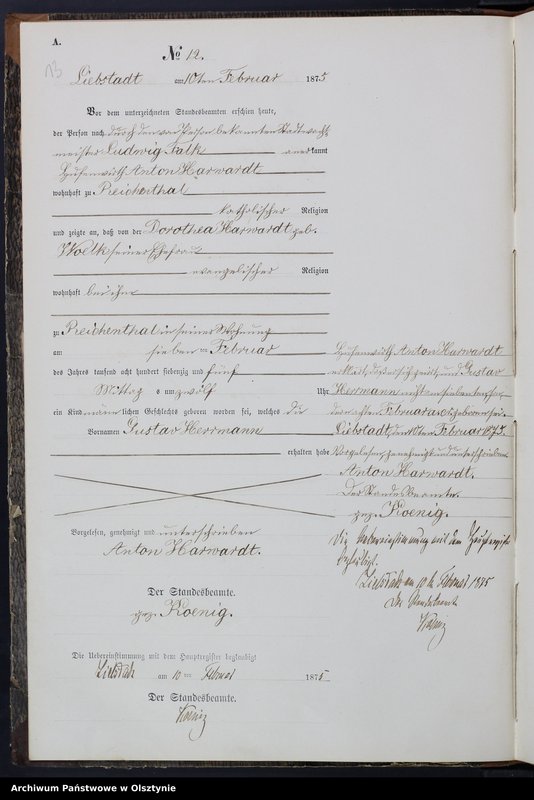 A.
13
No 12.
Liebstadt am 10ten Februar 1875
Vor dem unterzeichneten Standesbeamten erschien heute,
der Person nach durch den von Person bekannten Stadtwacht
meister Ludwig Falk anerkannt
Hufenwirth Anton Harwardt
wohnhaft zu Reichenthal
katholischer Religion
und zeigte an, daß von der Dorothea Harwardt geb.
Woelk seiner Ehefrau
evangelischer Religion
wohnhaft bei ihm
zu Reichenthal in seiner Wohnung
am sieben ten Februar
des Jahres tausend acht hundert siebenzig und fünf
Mittag s um zwölf Uhr
ein Kind männlichen Geschlechts geboren worden sei, welches die
Vornamen Gustav Herrmann
erhalten habe
Vorgelesen, genehmigt und unterschrieben
Anton Harwardt.
Der Standesbeamte.
gez. Koenig.
Die Uebereinstimmung mit dem Hauptregister beglaubigt
Liebstadt am 10 ten Februar 1875
Der Standesbeamte.
Koenig
Hufenwirth Anton Harwardt
erklärt, daß und Gustav
Herrmann nicht am siebenten, son
am achten Februar a. c. geboren sei.
Liebstadt, den 10ten Februar 1875.
Vorgelesen, genehmigt und unterschrieben
Anton Harwardt.
Der Standesbeamte.
gez. Koenig.
Die Uebereinstimmung mit dem Hauptregister
beglaubigt.
Liebstadt am 10 te Februar 1875
Der Standesbeamte
Koenig
Archiwum Państwowe w Olsztynie